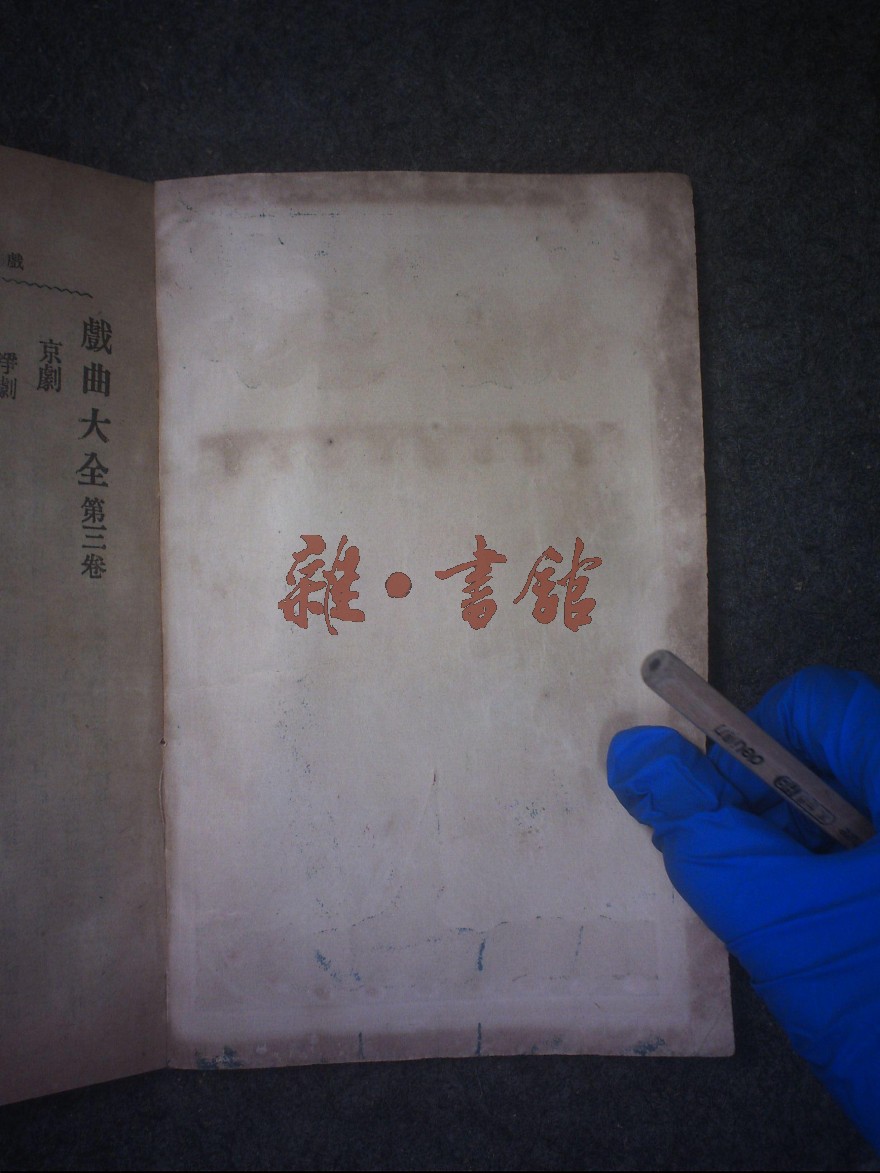 戲
戲曲大全第三卷
京劇
雜·書館